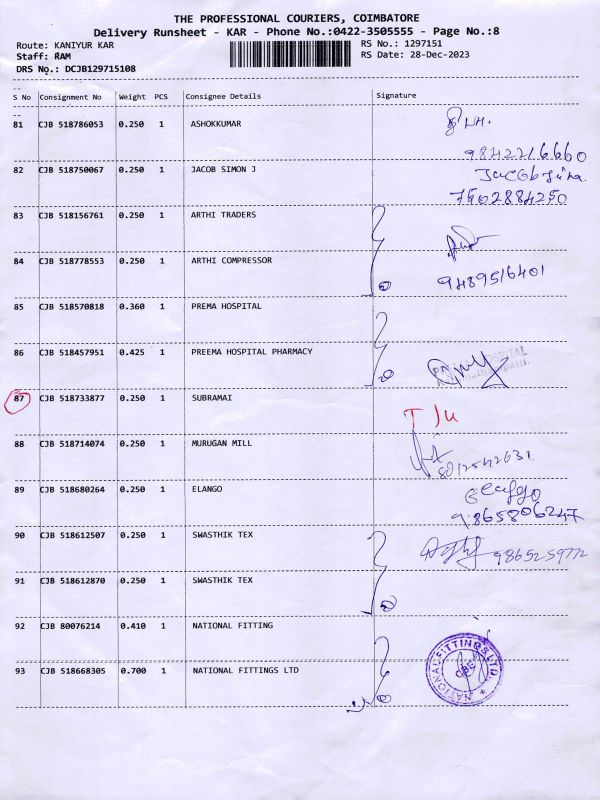 THE PROFESSIONAL COURIERS, COIMBATORE
Delivery Runsheet - KAR - Phone No.:0422-3505555 - Page No.:8
Route: KANIYUR KAR RS No.: 1297151
Staff: RAM RS Date: 28-Dec-2023
DRS No.: DCJB129715108
S No Consignment No Weight PCS Consignee Details Signature
81 CJB 518786053 0.250 1 ASHOKKUMAR
9842216660
82 CJB 518750067 0.250 1 JACOB SIMON J
7502884250
83 CJB 518156761 0.250 1 ARTHI TRADERS
84 CJB 518778553 0.250 1 ARTHI COMPRESSOR
9489516401
85 CJB 518570818 0.360 1 PREMA HOSPITAL
86 CJB 518457951 0.425 1 PREEMA HOSPITAL PHARMACY
87 CJB 518733877 0.250 1 SUBRAMAI
88 CJB 518714074 0.250 1 MURUGAN MILL
89 CJB 518680264 0.250 1 ELANGO
9865806247
90 CJB 518612507 0.250 1 SWASTHIK TEX
9865259772
91 CJB 518612870 0.250 1 SWASTHIK TEX
92 CJB 80076214 0.410 1 NATIONAL FITTING
93 CJB 518668305 0.700 1 NATIONAL FITTINGS LTD
NATIONAL FITTINGS LTD.